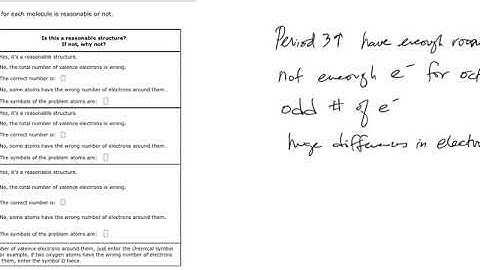 for each molecule is reasonable or not.
Is this a reasonable structure?
If not, why not?
Yes, it's a reasonable structure.
No, the total number of valence electrons is wrong.
The correct number is:
No, some atoms have the wrong number of electrons around them.
The symbols of the problem atoms are:
Yes, it's a reasonable structure.
No, the total number of valence electrons is wrong.
The correct number is:
No, some atoms have the wrong number of electrons around them.
The symbols of the problem atoms are:
Yes, it's a reasonable structure.
No, the total number of valence electrons is wrong.
The correct number is:
No, some atoms have the wrong number of electrons around them.
The symbols of the problem atoms are:
of valence electrons around them, just enter the chemical symbol
example, if two oxygen atoms have the wrong number of electrons
them, enter the symbol O twice.
Period 3↑ have enough room
not enough e⁻ for oct
odd # of e⁻
huge differences in electro